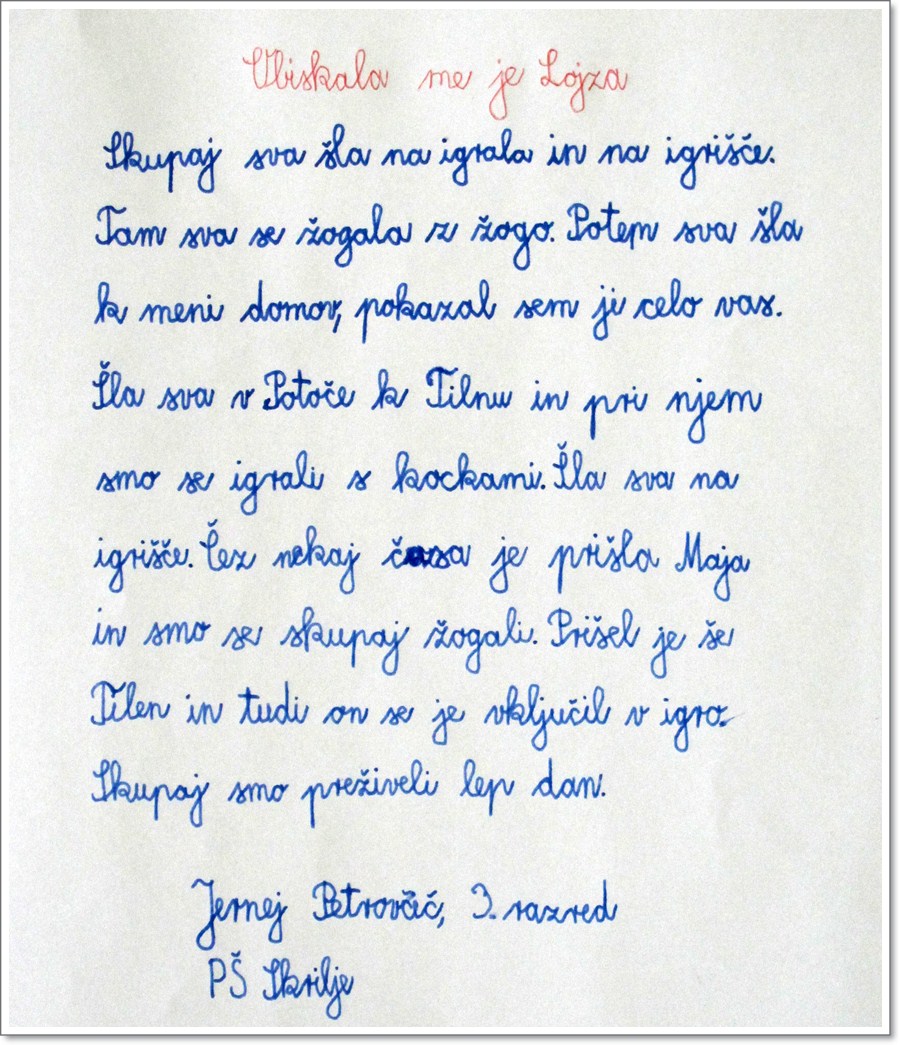 Obiskala me je Lojza
Skupaj sva šla na igrala in na igrišče.
Tam sva se žogala z žogo. Potem sva šla
k meni domov, pokazal sem ji celo vas.
Šla sva v Potoče k Tilnu in pri njem
smo se igrali s kockami. Šla sva na
igrišče. Čez nekaj časa je prišla Maja
in smo se skupaj žogali. Prišel je še
Tilen in tudi on se je vključil v igro.
Skupaj smo preživeli lep dan.
Jernej Petrovčič, 3. razred
PŠ Skrilje